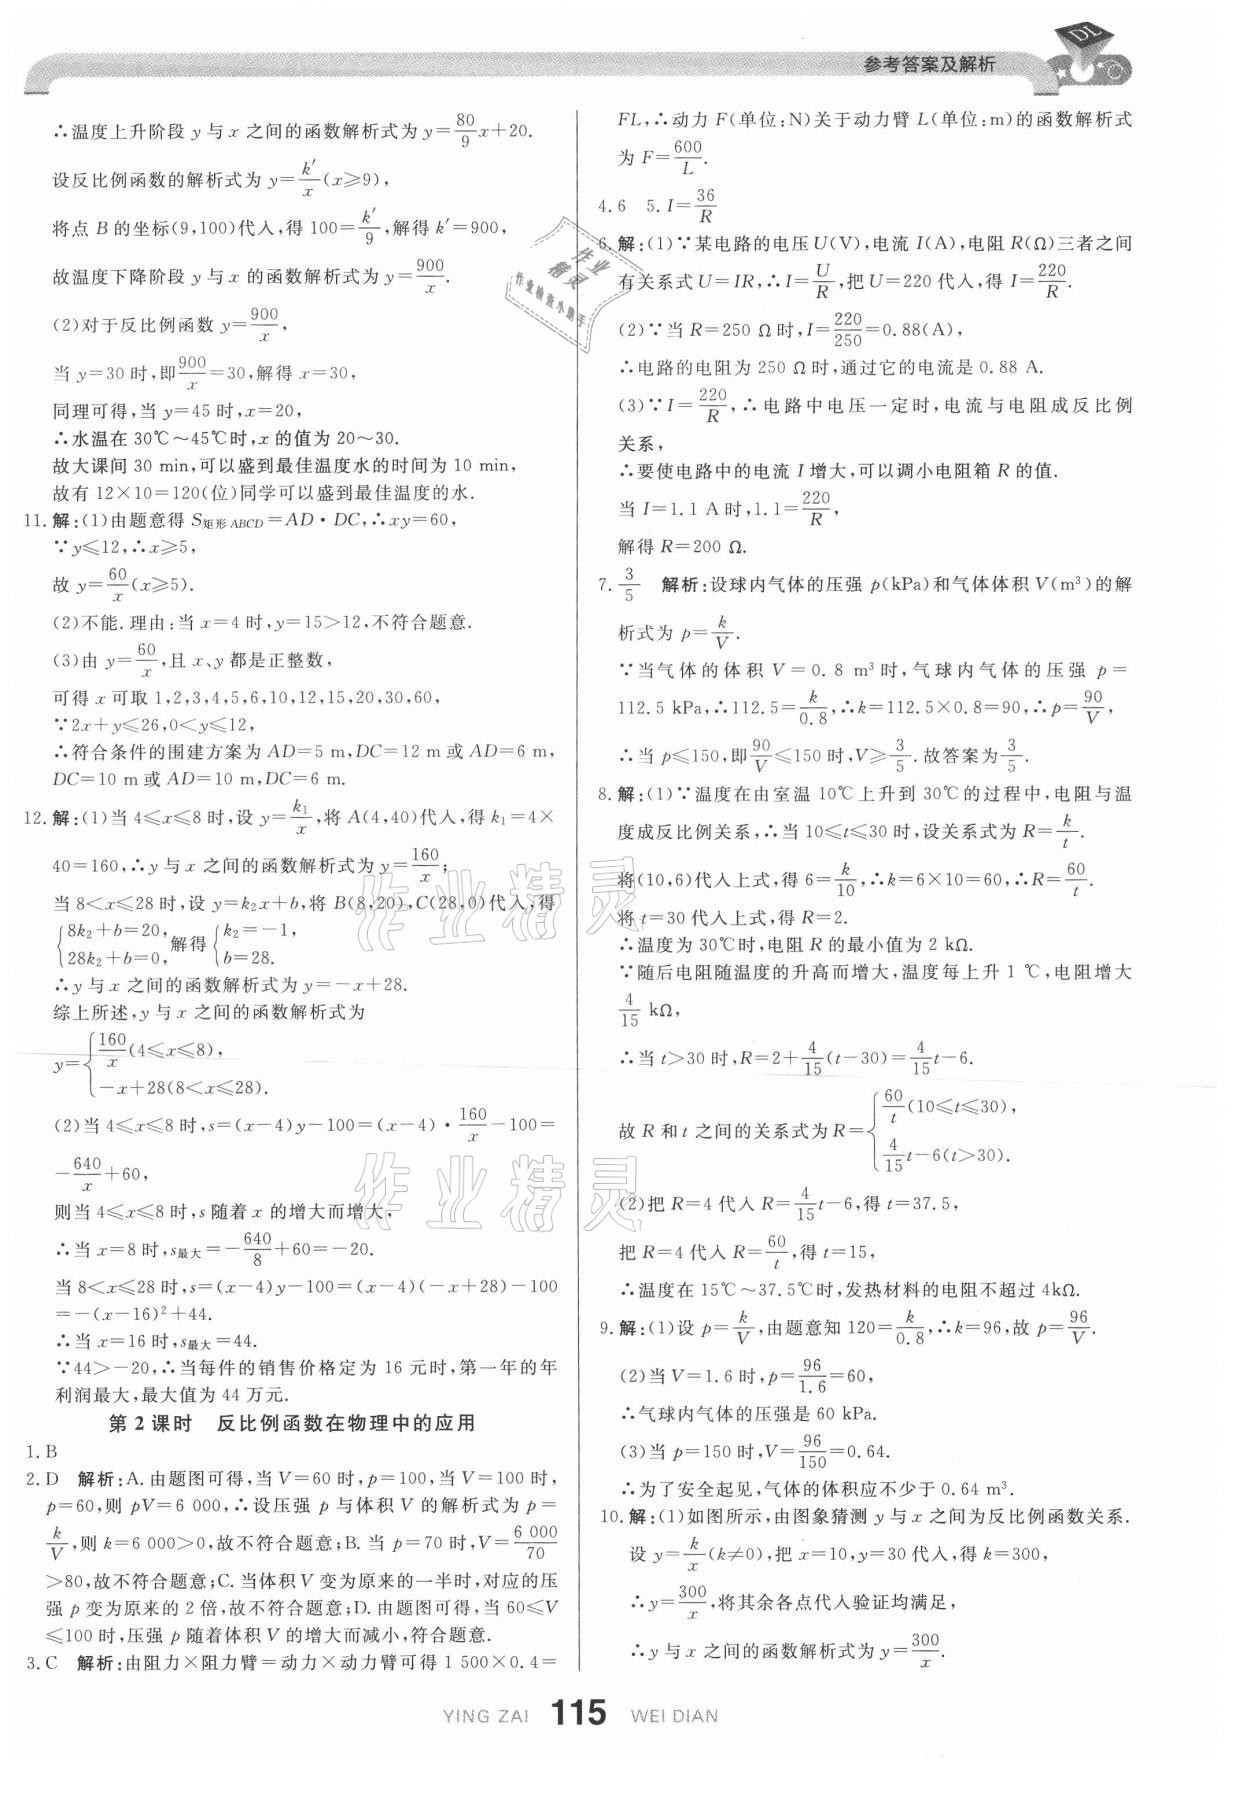 参考答案及解析
DL
∴温度上升阶段 y 与 x 之间的函数解析式为 y=80/9x+20.
设反比例函数的解析式为 y=k′/x(x≥9),
将点 B 的坐标(9,100)代入,得 100=k′/9,解得 k′=900,
故温度下降阶段 y 与 x 的函数解析式为 y=900/x.
(2)对于反比例函数 y=900/x,
当 y=30 时,即900/x=30,解得 x=30,
同理可得,当 y=45 时,x=20,
∴水温在 30℃~45℃时,x 的值为 20~30.
故大课间 30 min,可以盛到最佳温度水的时间为 10 min,
故有 12×10=120(位)同学可以盛到最佳温度的水.
11.解:(1)由题意得 S矩形ABCD=AD·DC,∴xy=60,
∵y≤12,∴x≥5,
故 y=60/x(x≥5).
(2)不能.理由:当 x=4 时,y=15>12,不符合题意.
(3)由 y=60/x,且 x、y 都是正整数,
可得 x 可取 1,2,3,4,5,6,10,12,15,20,30,60,
∵2x+y≤26,0<y≤12,
∴符合条件的围建方案为 AD=5 m,DC=12 m 或 AD=6 m,
DC=10 m 或 AD=10 m,DC=6 m.
12.解:(1)当 4≤x≤8 时,设 y=k₁/x,将 A(4,40)代入,得 k₁=4×
40=160,∴y 与 x 之间的函数解析式为 y=160/x;
当 8<x≤28 时,设 y=k₂x+b,将 B(8,20),C(28,0)代入,得
{8k₂+b=20, 28k₂+b=0, 解得{k₂=-1, b=28.
∴y 与 x 之间的函数解析式为 y=-x+28.
综上所述,y 与 x 之间的函数解析式为
y={160/x(4≤x≤8),
-x+28(8<x≤28).
(2)当 4≤x≤8 时,s=(x-4)y-100=(x-4)·160/x-100=
-640/x+60,
则当 4≤x≤8 时,s 随着 x 的增大而增大,
∴当 x=8 时,s最大=-640/8+60=-20.
当 8<x≤28 时,s=(x-4)y-100=(x-4)(-x+28)-100
=-(x-16)²+44.
∴当 x=16 时,s最大=44.
∵44>-20,∴当每件的销售价格定为 16 元时,第一年的年
利润最大,最大值为 44 万元.
第 2 课时 反比例函数在物理中的应用
1.B
2.D 解析:A.由题图可得,当 V=60 时,p=100,当 V=100 时,
p=60,则 pV=6 000,∴设压强 p 与体积 V 的解析式为 p=
k/V,则 k=6 000>0,故不符合题意;B.当 p=70 时,V=6 000/70
>80,故不符合题意;C.当体积 V 变为原来的一半时,对应的压
强 p 变为原来的 2 倍,故不符合题意;D.由题图可得,当 60≤V
≤100 时,压强 p 随着体积 V 的增大而减小,符合题意.
3.C 解析:由阻力×阻力臂=动力×动力臂可得 1 500×0.4=
FL,∴动力 F(单位:N)关于动力臂 L(单位:m)的函数解析式
为 F=600/L.
4.6 5.I=36/R
6.解:(1)∵某电路的电压 U(V),电流 I(A),电阻 R(Ω)三者之间
有关系式 U=IR,∴I=U/R,把 U=220 代入,得 I=220/R.
(2)∵当 R=250 Ω 时,I=220/250=0.88(A),
∴电路的电阻为 250 Ω 时,通过它的电流是 0.88 A.
(3)∵I=220/R,∴电路中电压一定时,电流与电阻成反比例
关系,
∴要使电路中的电流 I 增大,可以调小电阻箱 R 的值.
当 I=1.1 A 时,1.1=220/R,
解得 R=200 Ω.
7.3/5 解析:设球内气体的压强 p(kPa)和气体体积 V(m³)的解
析式为 p=k/V.
∵当气体的体积 V=0.8 m³ 时,气球内气体的压强 p=
112.5 kPa,∴112.5=k/0.8,∴k=112.5×0.8=90,∴p=90/V,
∴当 p≤150,即90/V≤150 时,V≥3/5.故答案为3/5.
8.解:(1)∵温度在由室温 10℃上升到 30℃的过程中,电阻与温
度成反比例关系,∴当 10≤t≤30 时,设关系式为 R=k/t.
将(10,6)代入上式,得 6=k/10,∴k=6×10=60,∴R=60/t.
将 t=30 代入上式,得 R=2.
∴温度为 30℃时,电阻 R 的最小值为 2 kΩ.
∵随后电阻随温度的升高而增大,温度每上升 1 ℃,电阻增大
4/15 kΩ,
∴当 t>30 时,R=2+4/15(t-30)=4/15t-6.
故 R 和 t 之间的关系式为 R={60/t(10≤t≤30),
4/15t-6(t>30).
(2)把 R=4 代入 R=4/15t-6,得 t=37.5,
把 R=4 代入 R=60/t,得 t=15,
∴温度在 15℃~37.5℃时,发热材料的电阻不超过 4kΩ.
9.解:(1)设 p=k/V,由题意知 120=k/0.8,∴k=96,故 p=96/V.
(2)当 V=1.6 时,p=96/1.6=60,
∴气球内气体的压强是 60 kPa.
(3)当 p=150 时,V=96/150=0.64.
∴为了安全起见,气体的体积应不少于 0.64 m³.
10.解:(1)如图所示,由图象猜测 y 与 x 之间为反比例函数关系.
设 y=k/x(k≠0),把 x=10,y=30 代入,得 k=300,
∴y=300/x,将其余各点代入验证均满足,
∴y 与 x 之间的函数解析式为 y=300/x.
作业
精灵
作业检查小助手
作业精灵
作业精灵
YING ZAI 115 WEI DIAN